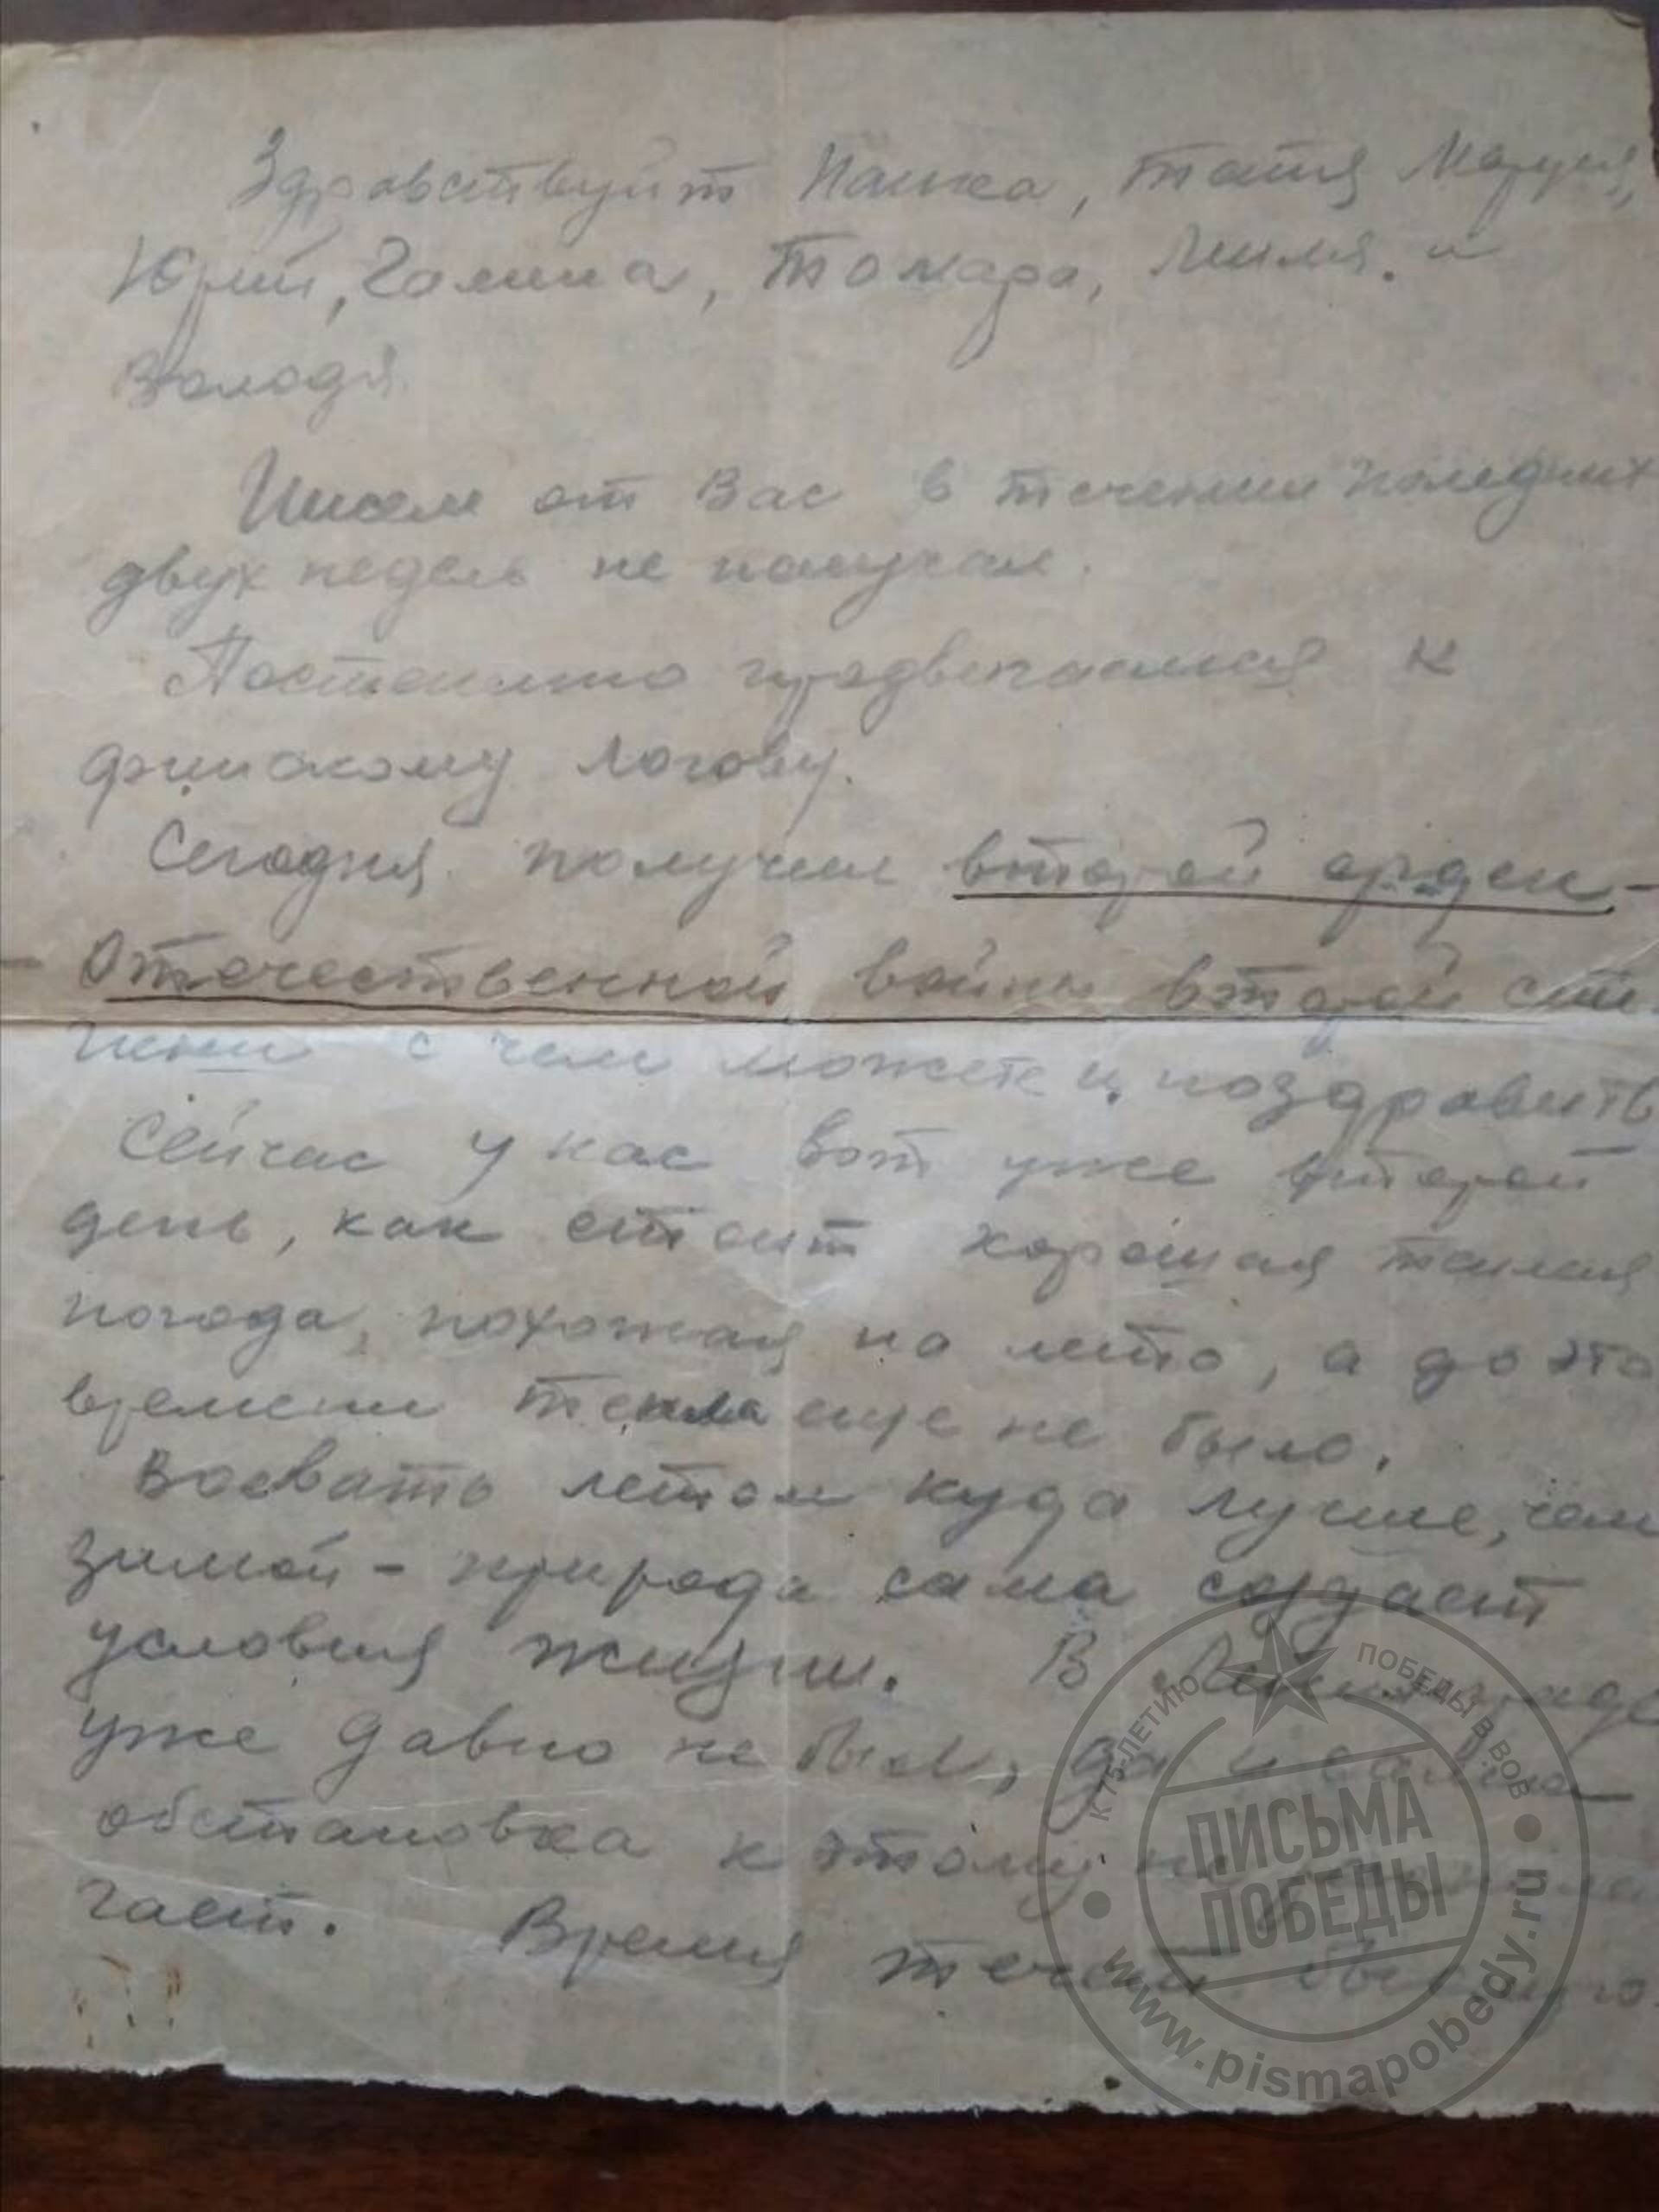 Здравствуйт Папка, тетя Маруся,
Юрий, Галина, Томара, Лиля. и
Володя.
Писем от Вас в течении последних
двух недель не получал.
Постепенно продвигаемся к
финскому логову.
Сегодня получил второй орден -
- Отечественной войны второй сте-
пени с чем можете и поздравить
Сейчас у нас вот уже второй
день, как стоит хорошая теплая
погода, похожая на лето, а до это
времени тепла еще не было.
Воевать летом куда лучше, чем
зимой - природа сама создает
условия жизни. В Ленинграде
уже давно не был, да и сама
обстановка к этому не распола
гает. Время течет быстро.
К 75-ЛЕТИЮ ПОБЕДЫ В ВОВ
ПИСЬМА
ПОБЕДЫ
www.pismapobedy.ru